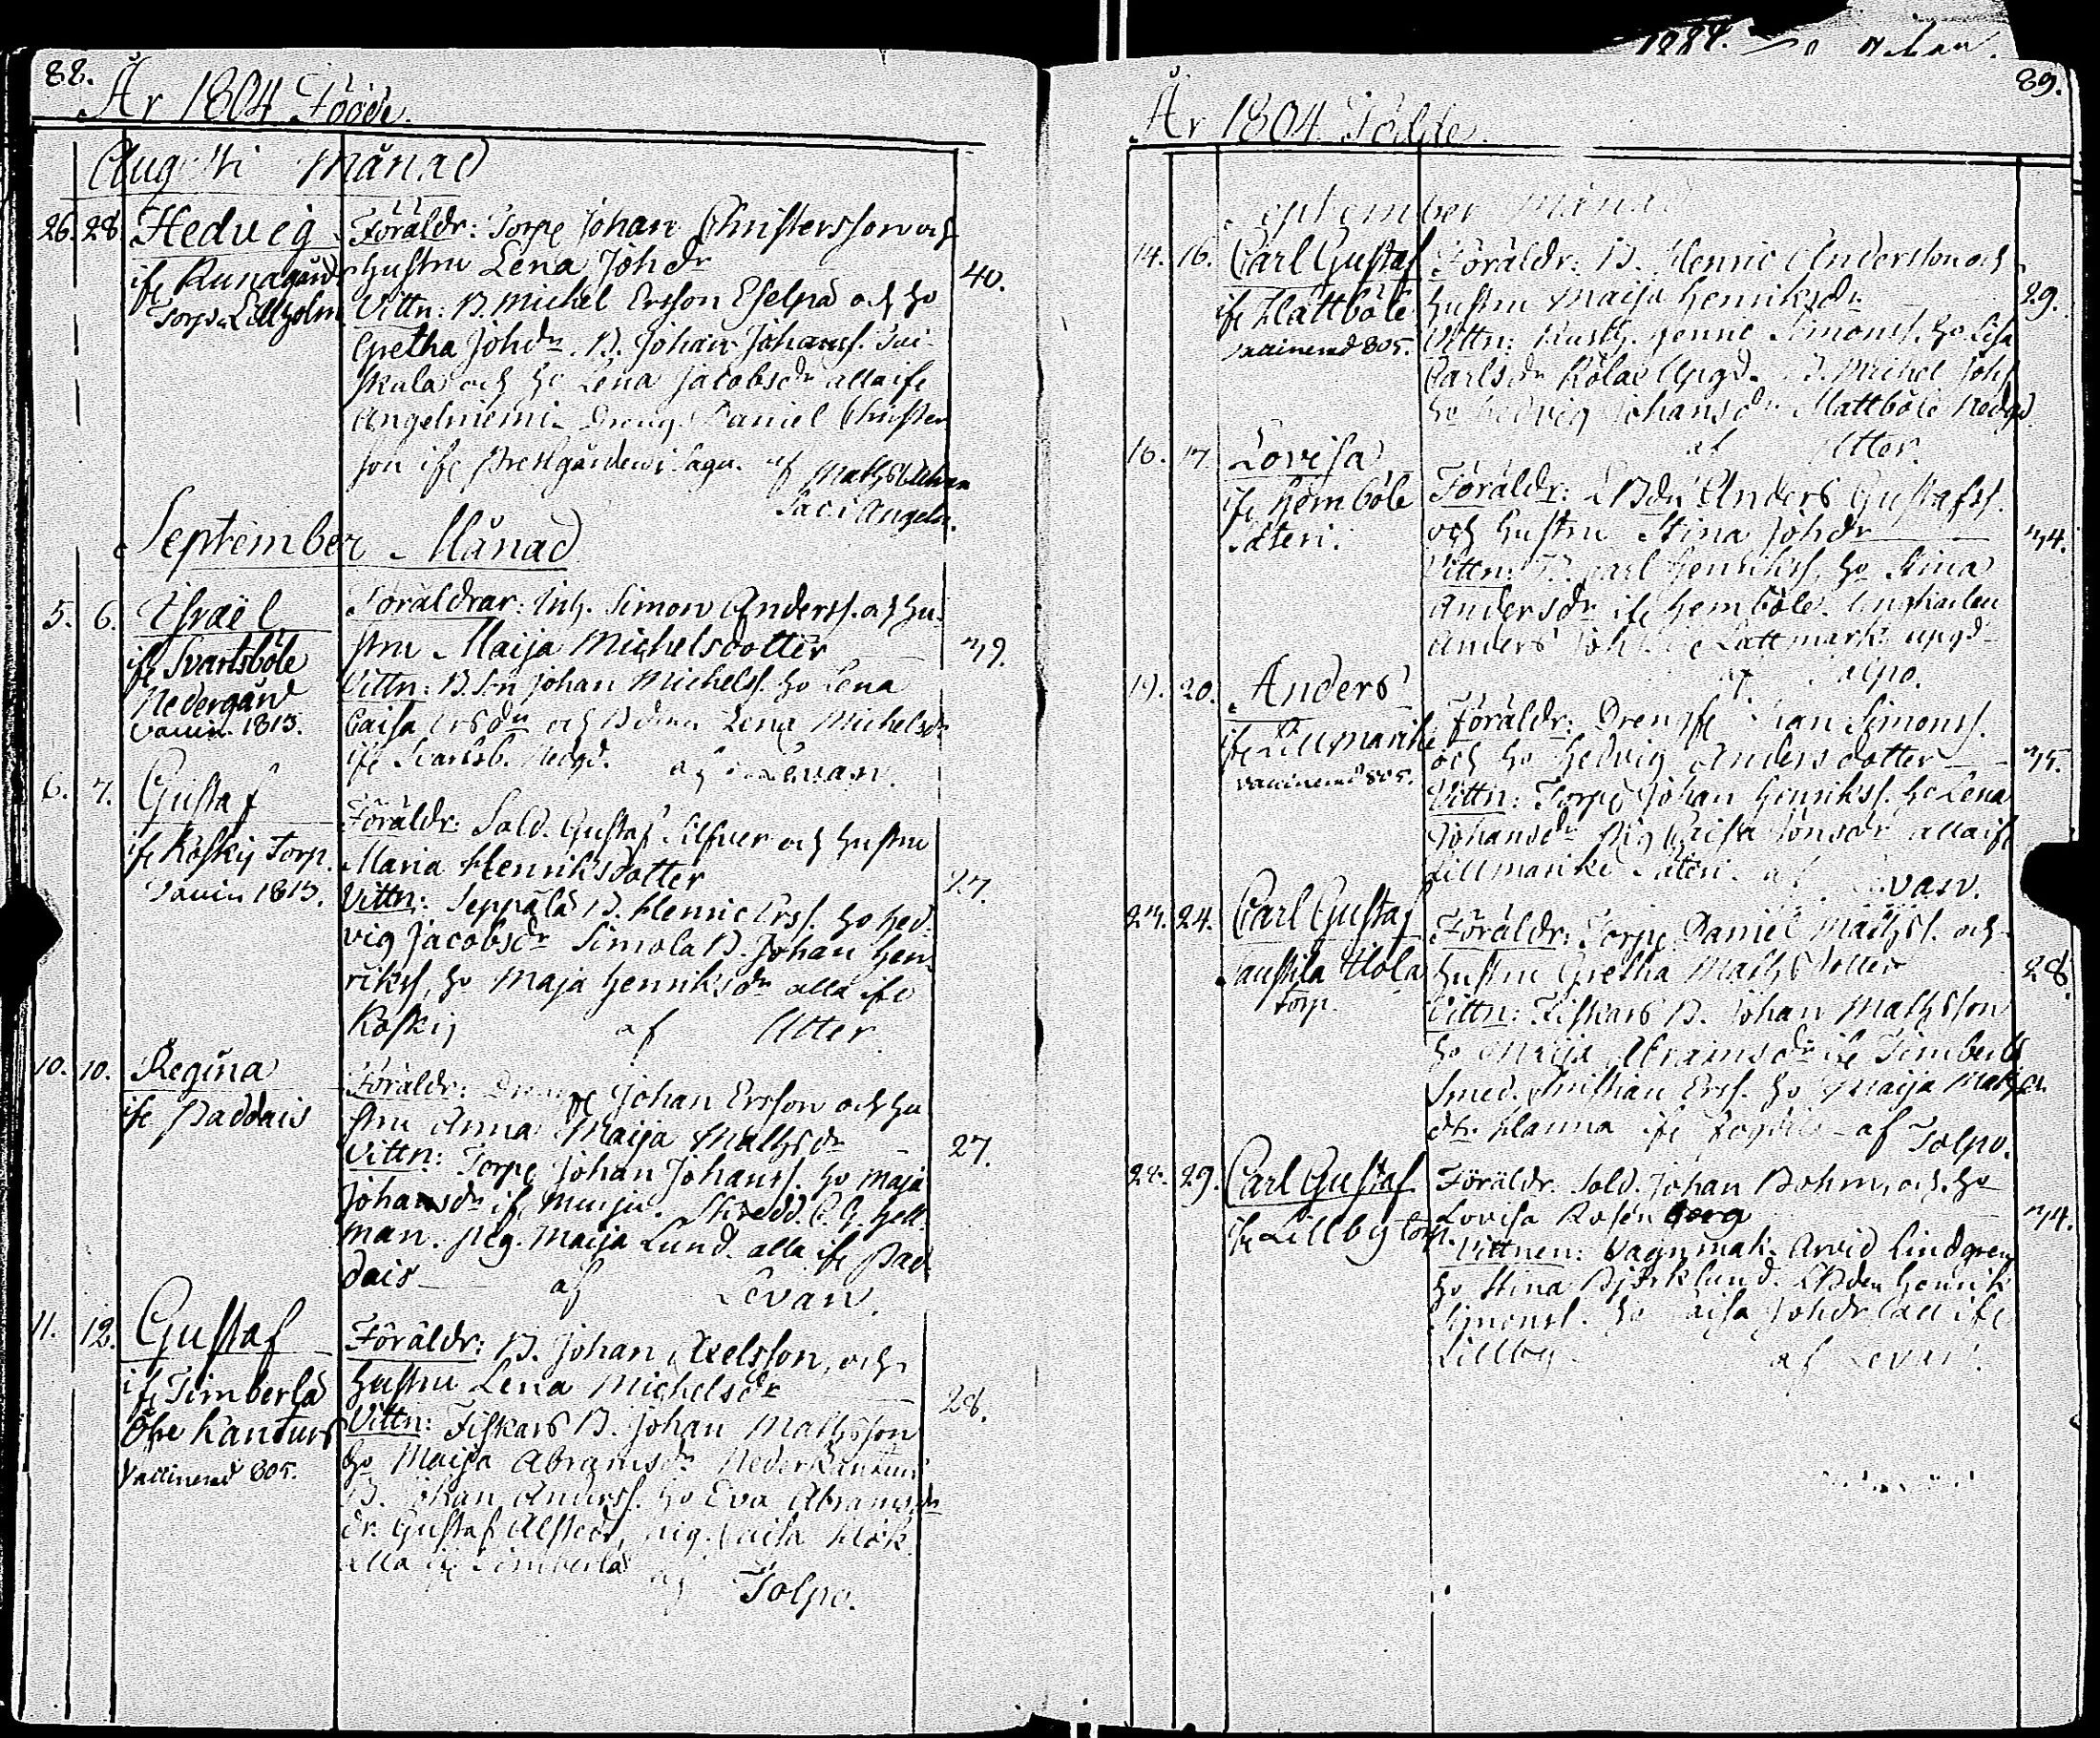 88.
År 1804 Födde.
Augusti Månad
26. 28. Hedvig
ifr Runagård
Torp. Lillholm
Föräldr: Torp. Johan Christersson och
hustru Lena Johdr
40.
Vittn: B. Michel Ersson och ho
Gretha Johdr. B. Johan Johanss.
skula och ho Lena Jacobsdr alla ifr
Angelniemi. Dreng. Daniel Christer
son ifr Prestgården i Sagu. af Maths
Sac. i Angeln.
September Månad
5. 6. Israël
ifr Svartsböle
Nedergård
Vaccin. 1813.
Föräldrar: Inh. Simon Anderss. och hu-
stru Maija Michelsdotter
39.
Vittn: B. Son Johan Michelss. ho Lena
Caisa Ersdr och Lena Michelsdr
ifr Svartsb. Nedgd. af Levan.
6. 7. Gustaf
ifr Koskij Torp.
Vaccin 1813.
Föräldr: Sold. Gustaf Silfver och hustru
Maria Henriksdotter
27.
Vittn: Seppälä B. Henric Erss. ho Hed-
vig Jacobsdr Simola B. Johan Hen-
rikss, ho Maja Henriksdr alla ifr
Koskij af Utter
10. 10. Regina
ifr Paddais
Föräldr: Johan Ersson och hu
stru Anna Maija Mathsdr
27.
Vittn: Torp. Johan Johanss. ho Maja
Johansdr ifr Munju. Skredd. C. G. Hell
man. Pig. Maija Lund. alla ifr Pad
dais af Levan.
11. 12. Gustaf
ifr Timberlä
Öfre Kanturs
Vaccinerad 805.
Föräldr: B. Johan Axelsson, och
hustru Lena Michelsdr
28.
Vittn: Fiskars B. Johan Mathsson
ho Maija Abramsdr Neder Kanturs
B. Johan Anderss. ho Eva Abramsdr
dr. Gustaf Pig. Caisa
alla ifr Timberlä af Tolpo.
1884.
89.
År 1804 Födde.
September Månad
14. 16. Carl Gustaf
ifr Mattböle
Vaccinerad 805.
Föräldr: B. Henric Andersson och
hustru Maija Henriksdr
29.
Vittn: Rusth. Henric Simonss. ho Lisa
Carlsdr B. Michel Johs
ho Hedvig Johansdr Mattböle Nedgd
af Utter.
16. 17. Lovisa
ifr Hemböle
Säteri.
Föräldr: Anders Gustafss.
och hustru Stina Johdr
34.
Vittn: B. Carl Henrikss, ho Stina
Andersdr ifr Hemböle. Ungkarlen
Anders Joh Lattmark upgd
af Tolpo.
19. 20. Anders
ifr Lillmarike
vaccinerad 805.
Föräldr: Simonss.
och ho Hedvig Andersdotter
35.
Vittn: Torp. Johan Henrikss. ho Lena
Johansdr Pig Caisa Jonsdr alla ifr
Lillmarike Säteri. af Levan.
23. 24. Carl Gustaf
Torp.
Föräldr: Torp. Daniel Mathss. och
hustru Gretha Mathsdotter
28.
Vittn: Fiskars B. Johan Mathsson
ho Maija Abramsdr ifr Timberlä
Smed. Christian Erss. ho Maija
Hanna ifr af Tolpo.
28. 29. Carl Gustaf
ifr Lillby torp.
Föräldr. Sold. Johan Bohm, och ho
Lovisa Rosenberg
34.
Vittnen: Vagnmak. Arvid Lindgren
ho Stina Björklund. Henrik
Simonss. ho Caisa Johdr, all ifr
Lillby af Levan.